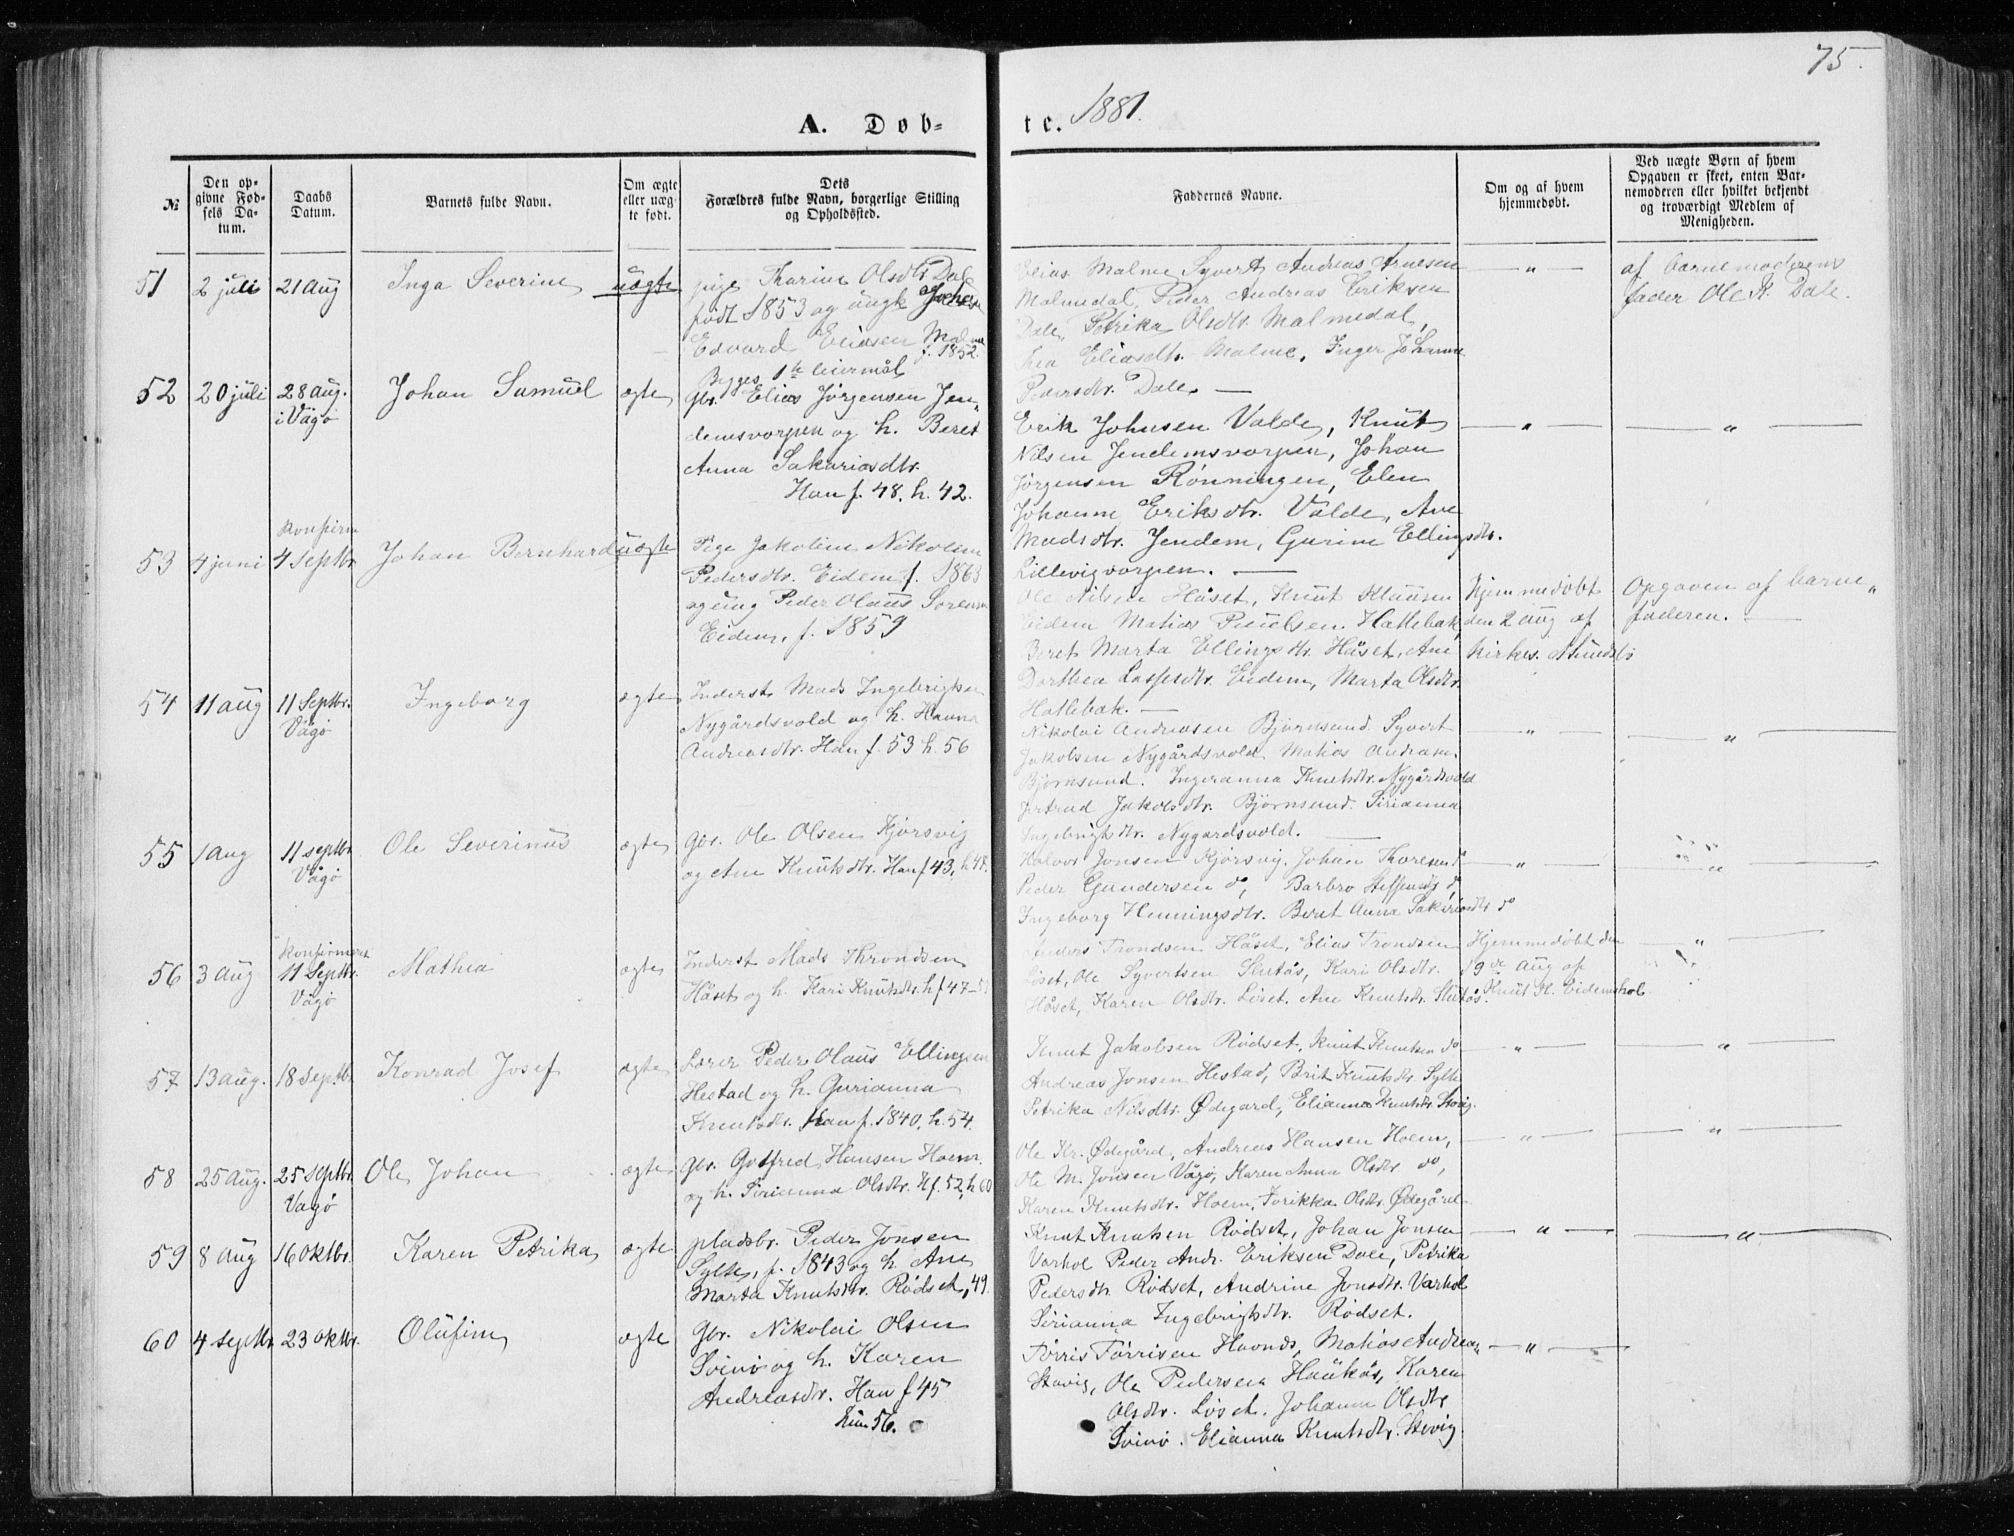 75.
A. Døb- te. 1881.
№
Den opgivne Fødsels Datum.
Daabs Datum.
Barnets fulde Navn.
Om ægte eller uægte født.
Dets Forældres fulde Navn, borgerlige Stilling og Opholdssted.
Faddernes Navne.
Om og af hvem hjemmedøbt.
Ved uægte Børn af hvem Opgaven er skeet, enten Barnemoderen eller hvilket bekjendt og troværdigt Medlem af Menigheden.
51 2 juli 21 Aug Inga Severine uægte
pige Karine Olsdtr. Dale
født 1853 og ungk
Edvard Eliasen Malme
f. 1852.
Begges 1ste leiermål
Elias Malme Syvert Andreas Arnesen
Malmedal, Peder Andreas Eriksen
Dale, Petrika Olsdtr. Malmedal,
Thea Eliasdtr. Malme, Inger Johanna
Pedersdtr. Dale. —
— „ —
af barnemoderens
fader Ole K. Dale.
52 20 juli 28 aug. i Vågø Johan Samuel ægte
Gbr. Elias Jørgensen Jen„
demsvorpen og h. Beret
Anna Sakariasdtr.
Han f. 48, h. 42.
Erik Johnsen Valde, Knut
Nilsen Jendemsvorpen, Johan
Jørgensen Rønningen, Elen
Johanne Eriksdtr. Valde, Ane
Madsdtr. Jendem, Gurine Ellingsdtr.
Lillevigvorpen. —
— „ —
— „ —
53 4 juni konfirm 4 Septbr. Johan Bernhard uægte
Pige Jakobine Nikoline
Pedersdtr. Eidem f. 1863
og ung Peder Olaus Sørensen
Eidem, f. 1859
Ole Nilsen Håset, Knut Klausen
Eidem Matias Paulsen Hatlebak,
Beret Marta Ellingsdtr. Håset, Ane
Dorthea Lassesdtr. Eidem, Marta Olsdtr.
Hatlebak. —
Hjemmedøbt
den 2 aug af
kirkes.
Opgaven af barne„
faderen. —
54 11 aug 11 Septbr. Vågø Ingeborg ægte
Inderst Mads Ingebrigtsen
Nygårdsvold og h. Hanna
Andreasdtr. Han f. 53 h. 56
Nikolai Andreasen Bjørnsund. Syvert
Jakobsen Nygårdsvold Matias Andreasen
Bjørnsund. Ingeranna Knutsdtr. Nygårdsvold
Jertrud Jakobsdtr. Bjørnsund. Sirianna
Ingebrigtsdtr. Nygårdsvold. —
— „ —
— „ —
55 1 aug 11 septbr Vågø Ole Severinus ægte
Gbr. Ole Olsen Kjørsvig
og Ane Knutsdtr. Han f 43, h 48.
Halvor Jonsen Kjørsvig. Johan Thoresen do
Peder Gundersen do, Barbro Steffensdtr do,
Ingeborg Henningsdtr. Beret Anna Sakariasdtr do
— „ —
— „ —
56 3 aug konfirmert 11 Septbr. Vågø Mathea ægte
Inderst Mads Throndsen
Håset og h. Kari Knutsdtr. h f 47–
Anders Trondsen Håset, Elias Trondsen
Løset, Ole Syvertsen Slutås, Kari Olsdtr.
Håset, Karen Olsdtr. Løset, Ane Knutsdtr. Slutås.
Hjemmedøbt den
19de aug af
Knut Eidemshol.
— „ —
57 13 aug. 18 Septbr. Konrad Josef ægte
Lærer Peder Olaus Ellingsen
Hestad og h. Gurianna
Knutsdtr. Han f. 1840, h. 54.
Knut Jakobsen Rødset, Knut Knutsen do.
Andreas Jonsen Hestad, Brit Knutsdtr. Sylte
Petrika Nilsdtr. Ødegård, Elianna Knutsdtr. Stavig.
— „ —
— „ —
58 25 aug. 25 septbr. Vågø Ole Johan ægte
Gbr. Gotfred Hansen Hoem.
og h. Sirianna Olsdtr. H f. 52, h 60
Ole Kr. Ødegård, Andreas Hansen Hoem,
Ole M. Jonsen Vågø, Karen Anna Olsdtr do,
Karen Knutsdtr. Hoem, Olsdtr. Ødegård
— „ —
— „ —
59 8 aug 16 oktbr. Karen Petrika ægte
pladsbr. Peder Jonsen
Sylte, f. 1843 og h. Ane
Marta Knutsdtr. Rødset, 49.
Knut Knutsen Rødset, Johan Jonsen
Varhol Peder Andr. Eriksen Dale, Petrika
Pedersdtr. Rødset, Andrine Jonsdtr. Varhol
Sirianna Ingebrigtsdtr. Rødset.
— „ —
— „ —
60 4 septbr 23 oktbr. Olufine ægte
Gbr. Nikolai Olsen
Svinø og h. Karen
Andreasdtr. Han f 45
hun 56.
Tørris Tørrisen Havnås, Matias Andreas„
Stavig, Ole Pedersen Haukås, Karen
Olsdtr. Løset. Johanne Olsdtr
Svinø. Elianna Knutsdtr. Stavig
— „ —